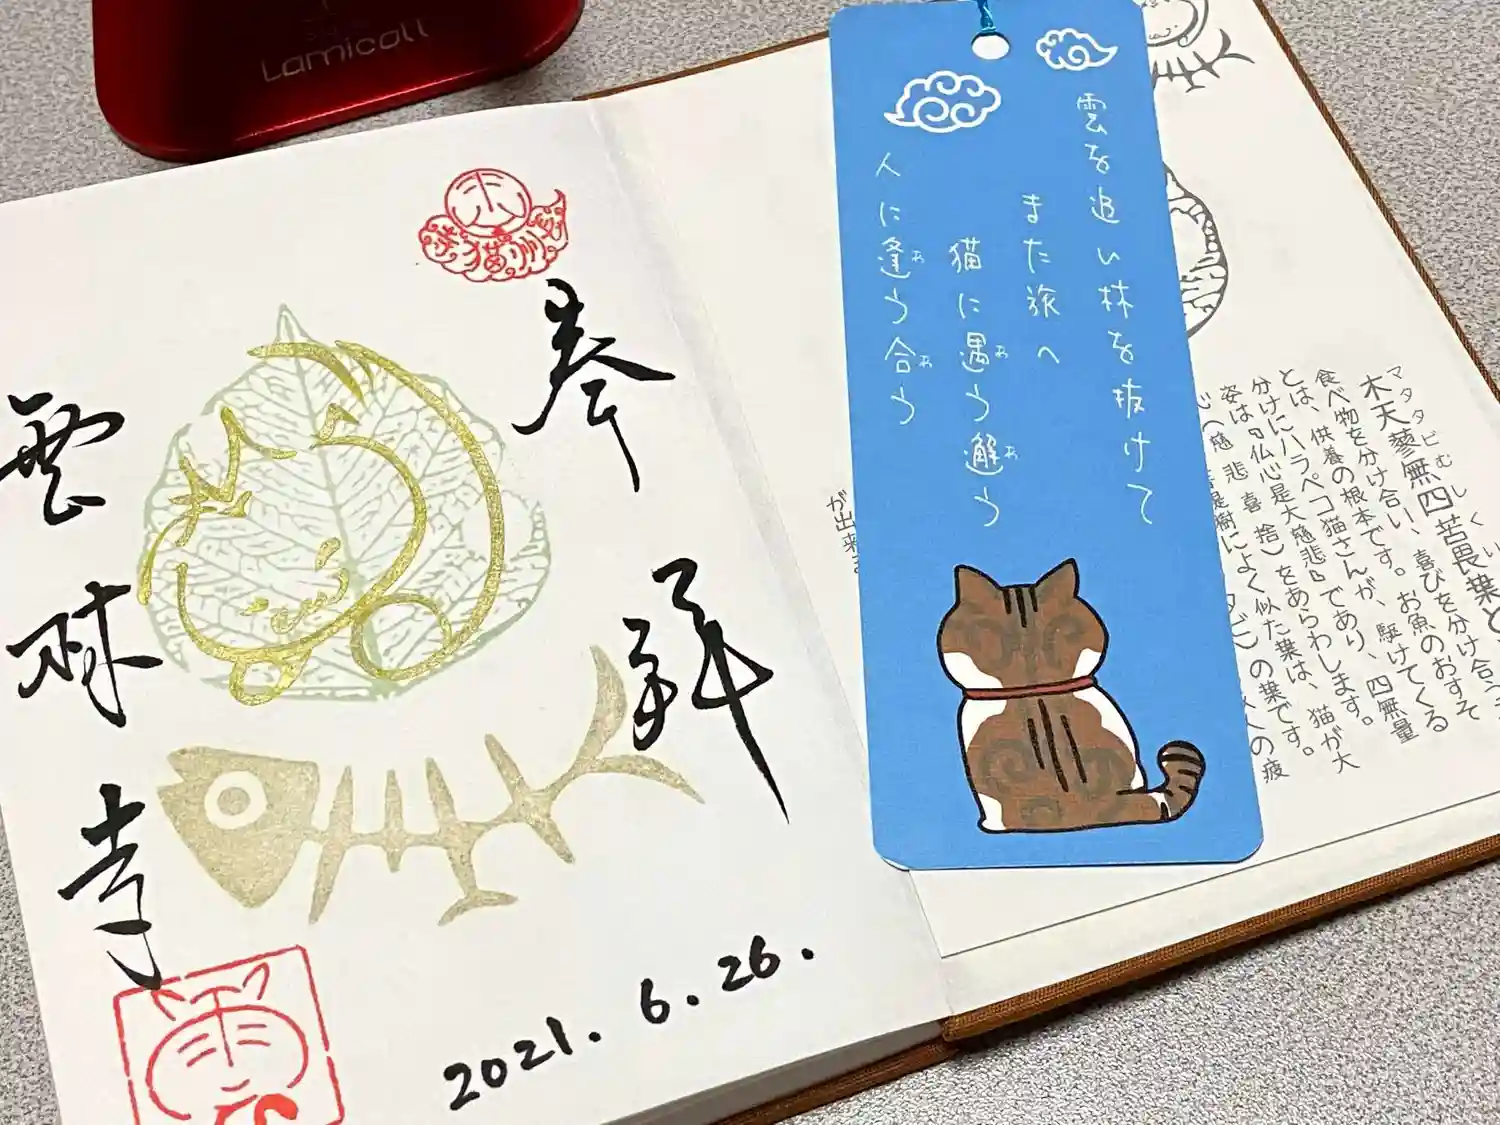 Lamicall
奉拝
雲林寺
2021. 6. 26.
雲を追い林を抜けて
また旅へ
猫に遇う邂う
人に逢う合う
木天蓼無四苦畏葉と
マタタビむしくい
食べ物を分け合い、喜びを分け合う
とは、供養の根本です。お魚のおすそ
分けにハラペコ猫さんが、駆けてくる
姿は『仏心是大慈悲』であり、四無量
心(慈悲喜捨)をあらわします。
樹によく似た葉は、猫が大
の葉です。
の疲
が出来